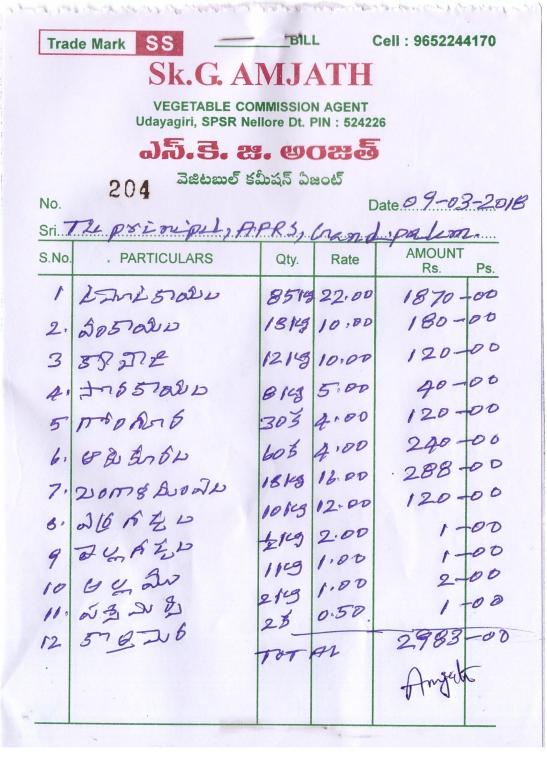 Trade Mark SS BILL Cell : 9652244170
Sk.G. AMJATH
VEGETABLE COMMISSION AGENT
Udayagiri, SPSR Nellore Dt. PIN : 524226
ఎస్.కె. జి. అంజత్
వెజిటబుల్ కమీషన్ ఏజంట్
No. 204 Date 09-03-2018
Sri. The principal, APRS, Gandipalem.
S.No. PARTICULARS Qty. Rate AMOUNT Rs. Ps.
1 85kg 22.00 1870-00
2. వంకాయలు 18kg 10.00 180-00
3 12kg 10.00 120-00
4. సొరకాయలు 8kg 5.00 40-00
5 గోంగూర 30క 4.00 120-00
6. ఆకుకూరలు 60క 4.00 240-00
7. బంగాళదుంపలు 18kg 16.00 288-00
8. ఎర్రగడ్డలు 10kg 12.00 120-00
9 తెల్లగడ్డలు ½kg 2.00 1-00
10 అల్లము 1kg 1.00 1-00
11. పచ్చిమిర్చి 2kg 1.00 2-00
12 కొత్తిమీర 2క 0.50 1-00
TOTAL 2983-00
Amjath